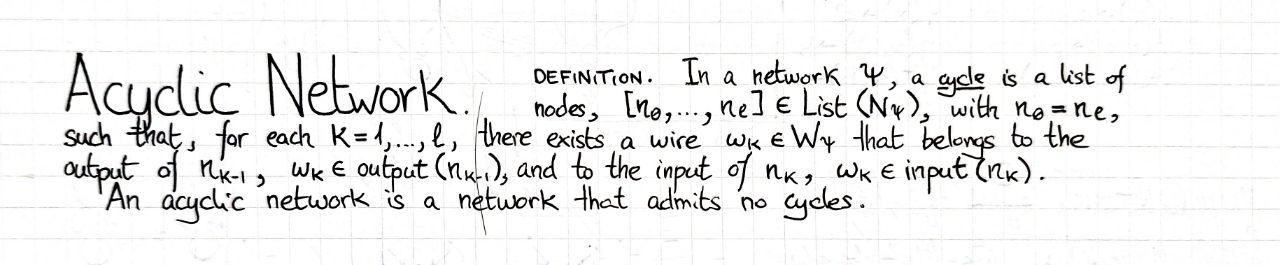 Acyclic Network.
DEFINITION. In a network Ψ, a cycle is a list of
nodes, [n₀,..., nₑ] ∈ List (N_Ψ), with n₀ = nₑ,
such that, for each K=1,..., ℓ, there exists a wire ωₖ ∈ W_Ψ that belongs to the
output of nₖ₋₁, ωₖ ∈ output (nₖ₋₁), and to the input of nₖ, ωₖ ∈ input (nₖ).
An acyclic network is a network that admits no cycles.